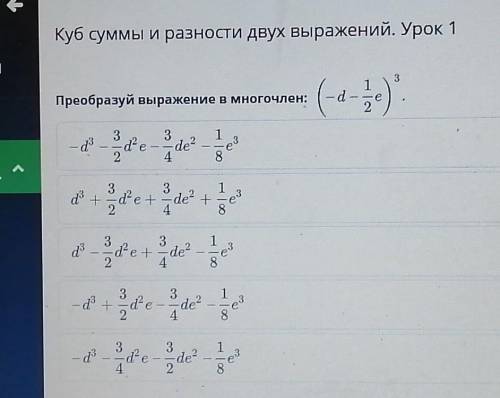 Куб суммы и разности двух выражений. Урок 1
Преобразуй выражение в многочлен: (-d - 1/2 e)³.
-d³ - 3/2 d²e - 3/4 de² - 1/8 e³
d³ + 3/2 d²e + 3/4 de² + 1/8 e³
d³ - 3/2 d²e + 3/4 de² - 1/8 e³
-d³ + 3/2 d²e - 3/4 de² - 1/8 e³
-d³ - 3/4 d²e - 3/2 de² - 1/8 e³